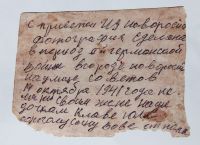 с приветом Из новоросий
Фотография сделана
в период от германской
войны в городе новоросий
на улице советов
14 октября 1941 года
своим жене Наде
дочкам Клаве Юле
сыну Вове от